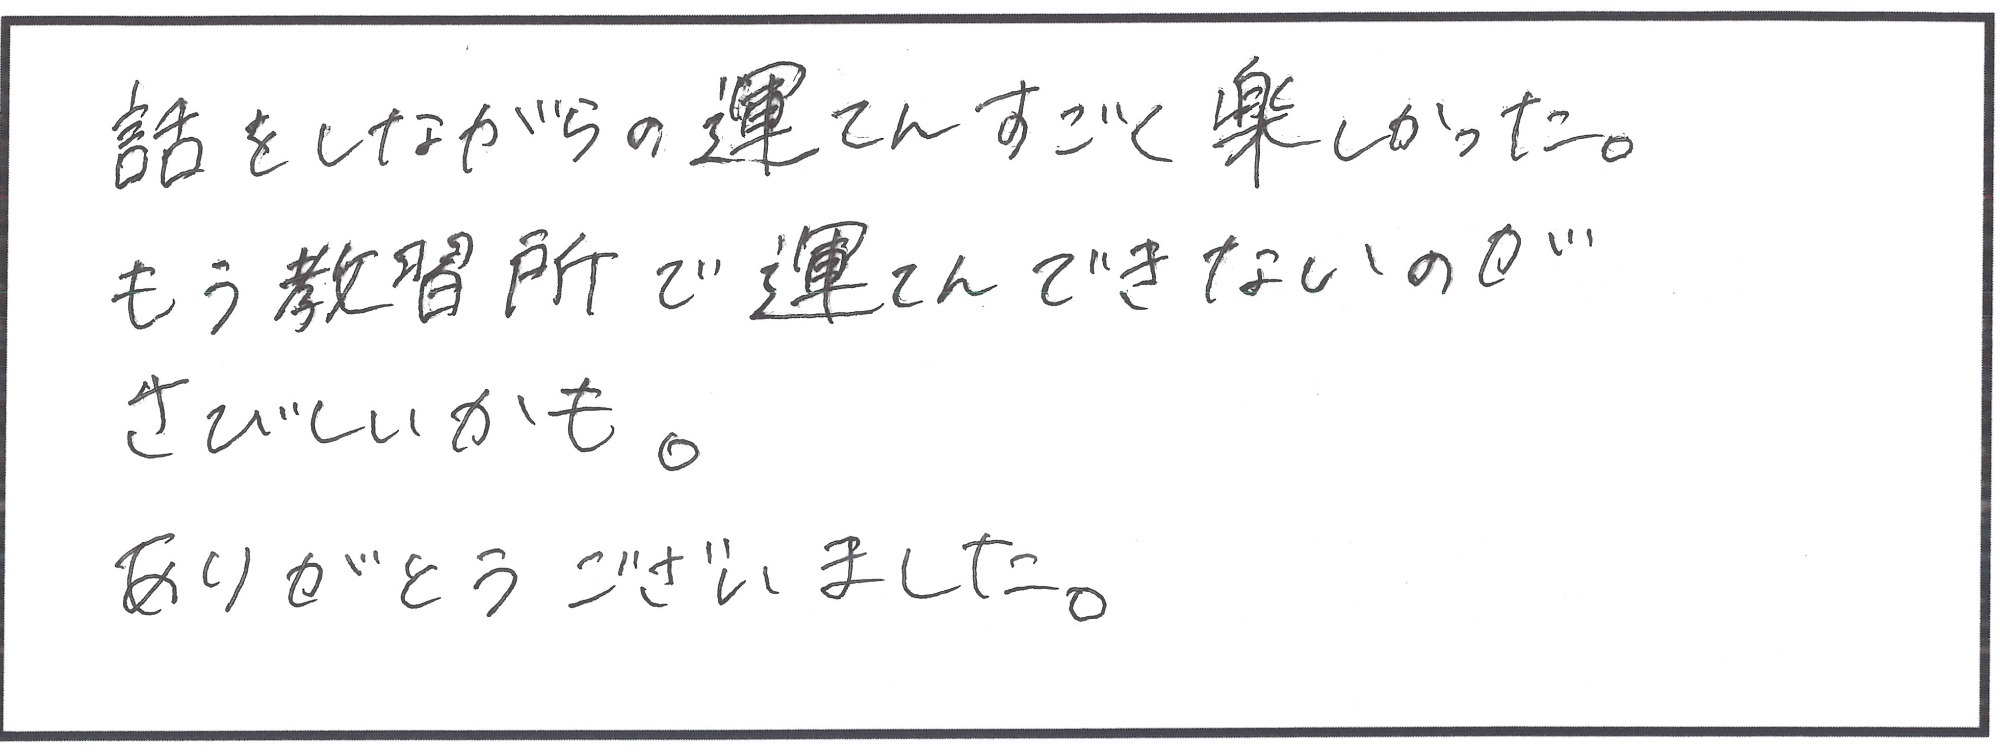 話をしながらの運てんすごく楽しかった。
もう教習所で運てんできないのが
さびしいかも。
ありがとうございました。